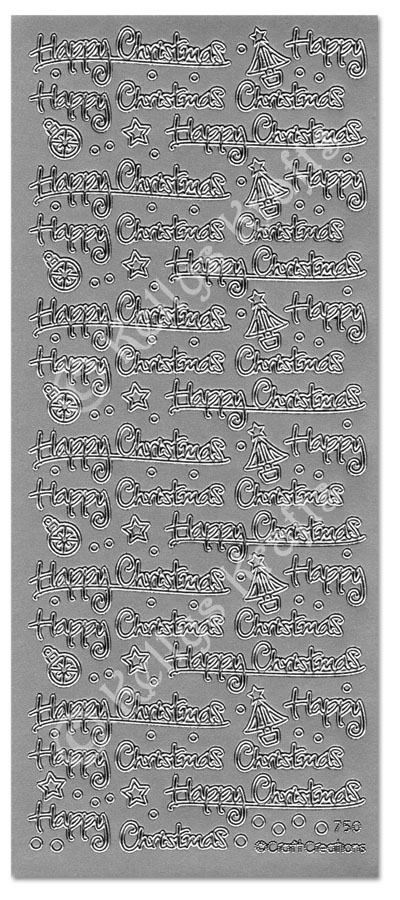 Happy Christmas Happy
Happy Christmas Christmas
Happy Christmas
Happy Christmas Happy
Happy Christmas Christmas
Happy Christmas
Happy Christmas Happy
Happy Christmas Christmas
Happy Christmas
Happy Christmas Happy
Happy Christmas Christmas
Happy Christmas
Happy Christmas Happy
Happy Christmas Christmas
Happy Christmas
Happy Christmas Happy
Happy Christmas Christmas
Happy Christmas
Happy Christmas
750
©Craft Creations
© Kellys Krafts
© Kellys Krafts